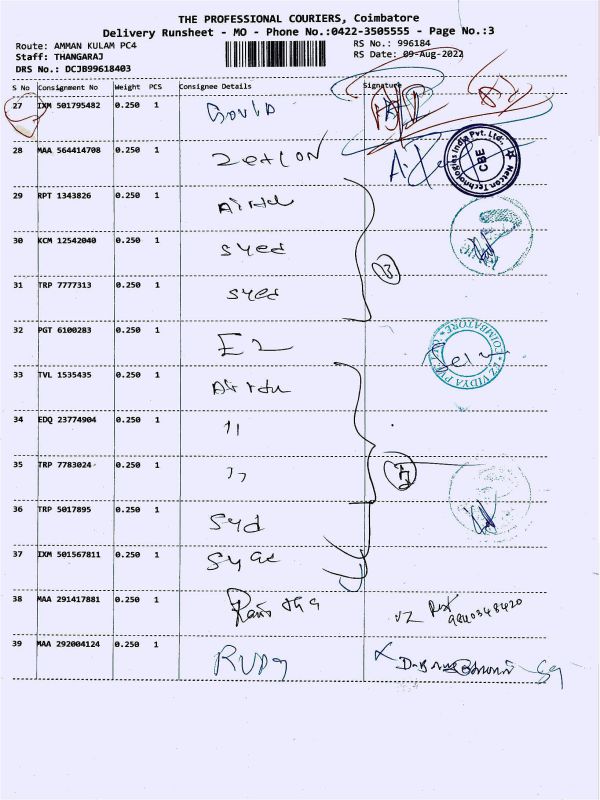 THE PROFESSIONAL COURIERS, Coimbatore
Delivery Runsheet - MO - Phone No.:0422-3505555 - Page No.:3
Route: AMMAN KULAM PC4
RS No.: 996184
Staff: THANGARAJ
RS Date: 09-Aug-2022
DRS No.: DCJB99618403
S No Consignment No Weight PCS Consignee Details Signature
27 IXM 501795482 0.250 1
28 MAA 564414708 0.250 1
Netcon Technologies India Pvt. Ltd., CBE
29 RPT 1343826 0.250 1 Airtel
30 KCM 12542040 0.250 1 Syed
31 TRP 7777313 0.250 1 Syed
32 PGT 6100283 0.250 1 E2
COIMBATORE
33 TVL 1535435 0.250 1 Airtel
34 EDQ 23774904 0.250 1 "
35 TRP 7783024 0.250 1 "
36 TRP 5017895 0.250 1 Syd
37 IXM 501567811 0.250 1
38 MAA 291417881 0.250 1
39 MAA 292004124 0.250 1